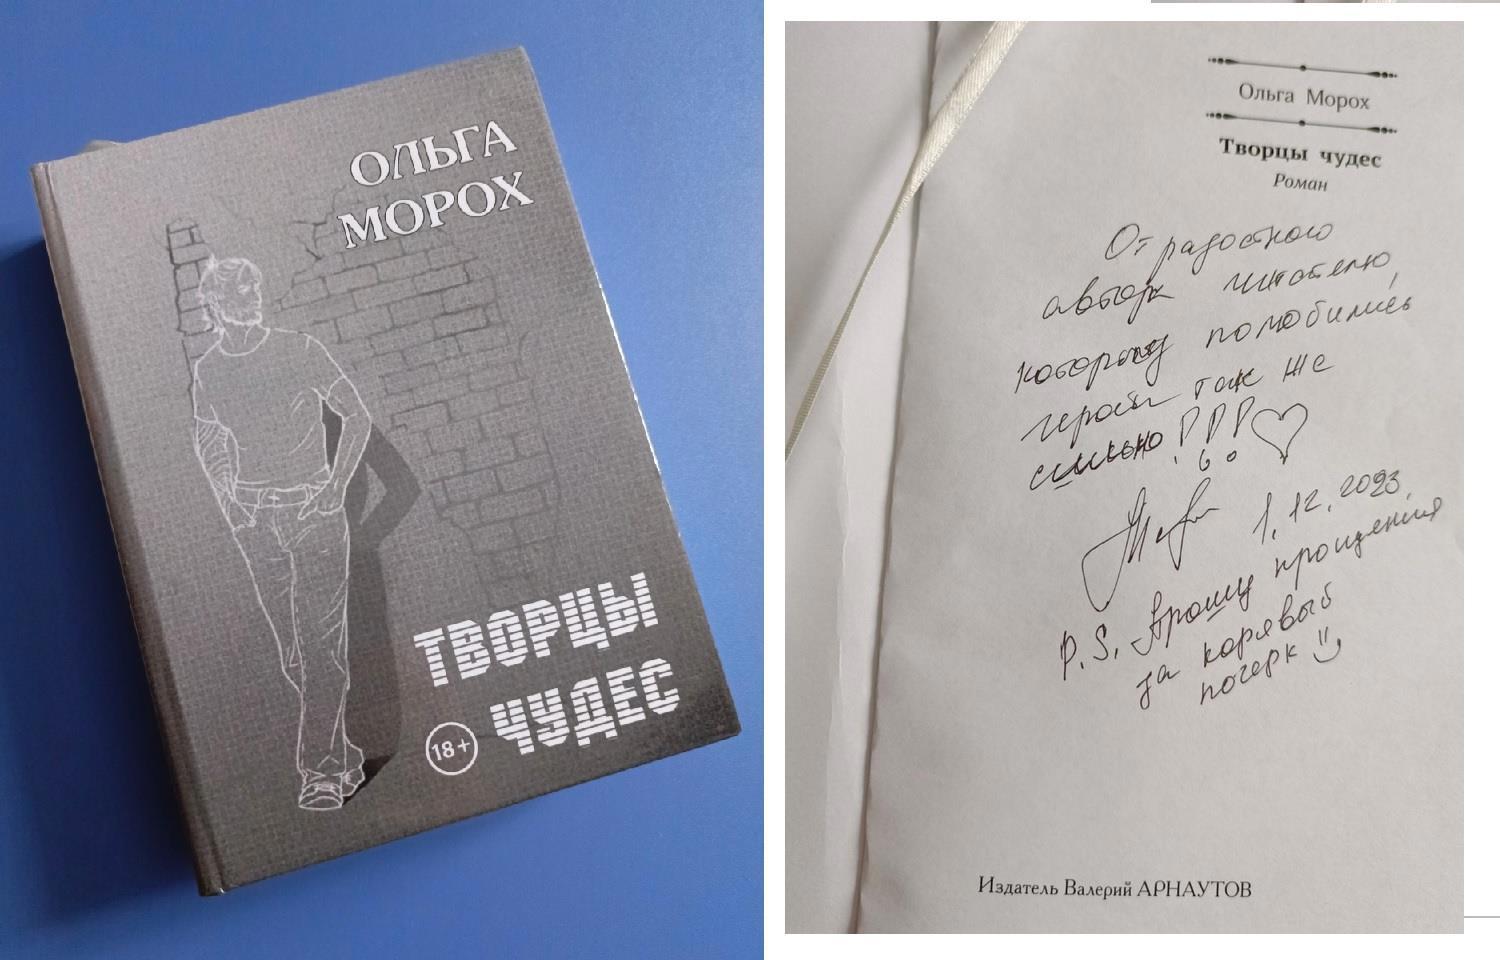 ОЛЬГА
МОРОХ
ТВОРЦЫ
18+ ЧУДЕС
Ольга Морох
Творцы чудес
Роман
От радостного
автора читателю,
которому полюбились
герои так же
сильно!!! ♡
1.12.2023
P.S. Прошу прощения
за корявый
почерк
Издатель Валерий АРНАУТОВ